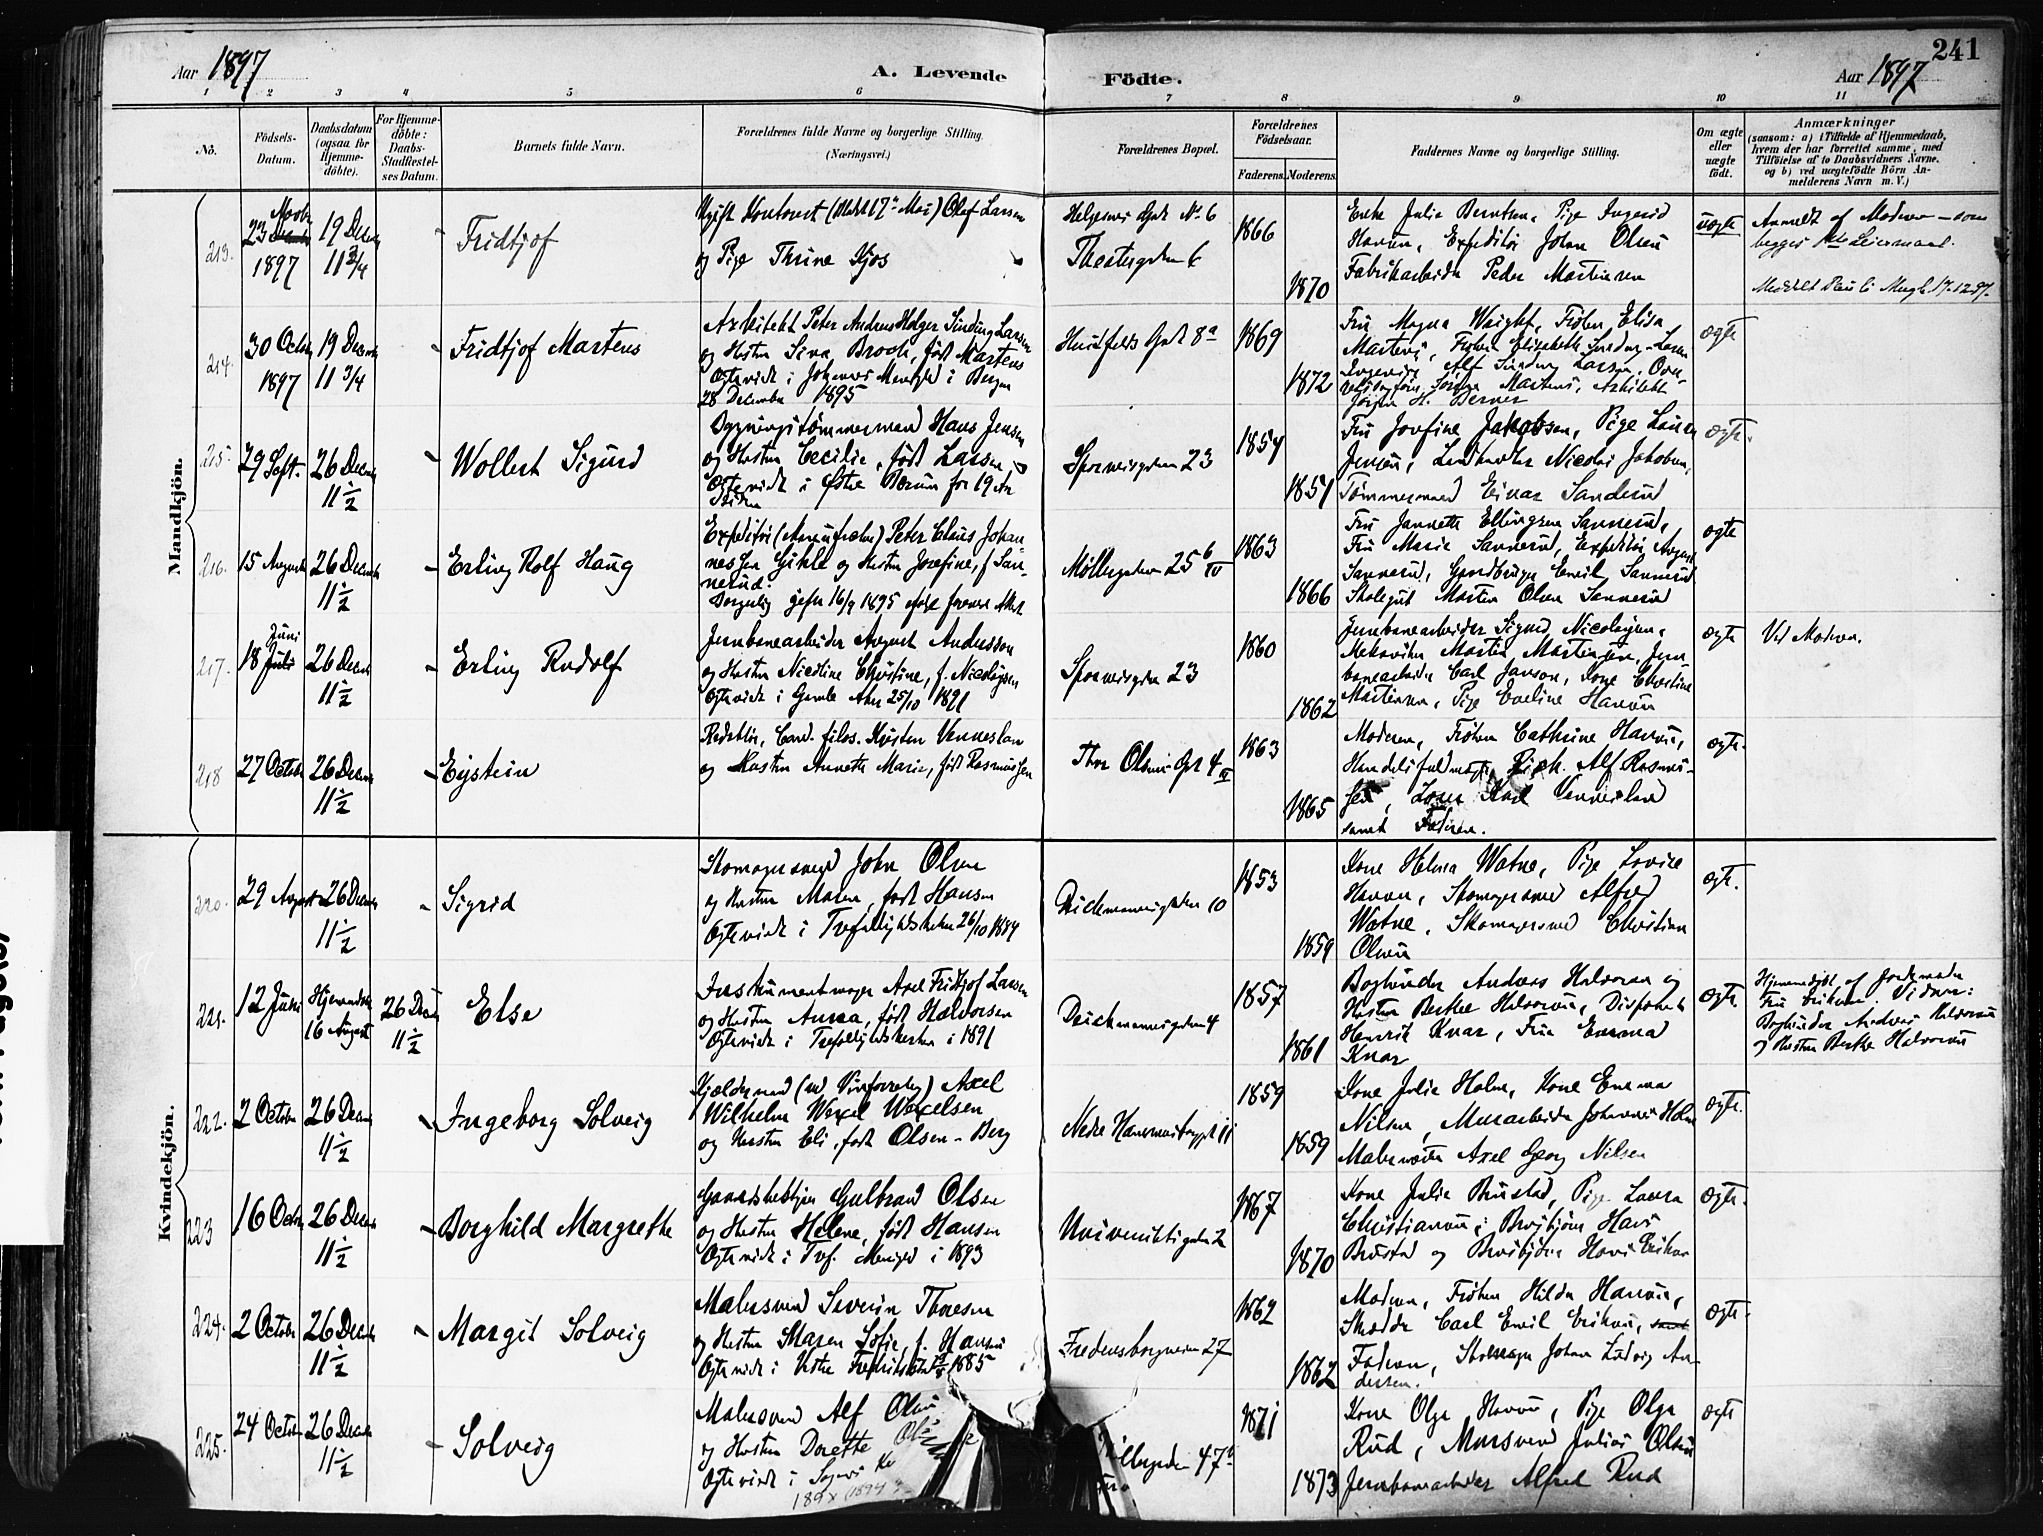 241
Aar 1897
A. Levende Födte.
Aar 1897
1 2 3 4 5 6 7 8 9 10 11
No.
Födsels-Datum.
Daabsdatum (ogsaa for Hjemmedöbte).
For Hjemmedöbte: Daabs-Stadfæstelses Datum.
Barnets fulde Navn.
Forældrenes fulde Navne og borgerlige Stilling.
(Næringsvei.)
Forældrenes Bopæl.
Forældrenes Födselsaar.
Faderens. Moderens.
Faddernes Navne og borgerlige Stilling.
Om ægte eller uægte födt.
Anmærkninger
(saasom: a) i Tilfælde af Hjemmedaab,
hvem der har forrettet samme, med
Tilföielse af to Daabsvidners Navne.
og b) ved uægtefödte Börn An-
melderens Navn m. V.)
Mandkjön.
213. 23 Novbr 1897
19 Decm 11 3/4
Fridtjof
og Pige Thrine
Theatergaden 6
1866
1870
Enke Julie Berntsen, Pige Ingerid
Hansen, Expeditör Johan Olsen
Fabrikarbeider Peder Martinsen
uægte
Anmeldt af Moderen – som
214. 30 Octob 1897
19 Decm 11 3/4
Fridtjof Martens
Arkitekt Peter Andreas Holger Sinding Larsen
og Hustru Siva Broch, født Martens
Ægteviede i Johannes Menighed i Bergen
28 December 1895
Huitfelds Gade 8a
1869
1872
Fru Magna Wright, Frøken Elisa
Martens, Frøken Elisabeth Sinding-Larsen
Ingeniør Alf Sinding Larsen
Martens, Arkitekt
H. Berner
ægte
215. 29 Sept.
26 Decm 11 1/2
Wollert Sigurd
Bygningstømmermand Hans Jensen
og Hustru Cecilie, født Larsen
Ægteviede i Østre Bærum for 19 Aar
Siden
Sporveisgaden 23
1854
1851
Fru Josefine Jakobsen, Pige Laura
Jensen, Nicolai Jakobsen,
Tømmermand Einar Sanderud
ægte.
216. 15 August
26 Decm 11 1/2
Erling Rolf Haug
Expeditør Peter Claus Johan
nessen Gihle og Hustru Josefine, f. San-
nerud.
Borgerlig gift 16/9 1895
Møllergaden 25 b IV
1863
1866
Fru Jannette Ellingsen Sannerud,
Fru Marie Sannerud, Expeditör August
Sannerud, Gaardbruger Emil Sannerud
Skolegut Martin Olsen Sannerud
ægte
217. 18 Juni Juli
26 Decm 11 1/2
Erling Rudolf
Jernbanearbeider August Andersson
og Hustru Nicoline Christine, f. Nicolaysen
Ægteviede i Gamle Aker 25/10 1891
Sporveisgaden 23
1860
1862
Jernbanearbeider Sigurd Nicolaysen,
Mekaniker Martin Martinsen, Jern-
banearbeider Carl Janson, Kone Christine
Martinsen, Pige Eveline Hansen
ægte
Ved Moderen.
218 27 October
26 Decm 11 1/2
Eystein
Redaktør, Cand. filos. Kristen Venneslan
og Hustru Annette Marie, født Rasmussen
Thor Olsens Gade 4 IV
1863
1865
Moderen, Frøken Cathrine Hansen,
Handelsfuldmægtig Rich. Alf Rasmus-
sen, Lærer Karl Venneslan
samt Faderen.
ægte.
Kvindekjön.
220. 29 August
26 Decm 11 1/2
Sigrid
Skomagersvend John Olsen
og Hustru Maren, født Hansen
Ægteviede i Trefoldighedskirken 26/10 1884
Deichmannsgaden 10
1853
1859
Kone Helma Watne, Pige Lovise
Hansen, Skomagersvend Alfred
Watne, Skomagersvend Christian
Olsen
ægte.
221. 12 Juni
Hjemmedøbt 16 August
26 Decm 11 1/2
Else
Instrumentmager Axel Fridtjof Larsen
og Hustru Anna, født Halvorsen
Ægteviede i Trefoldighedskirken i 1891
Deichmannsgaden 4
1857
1861
Bogbinder Andreas Halvorsen og
Hustru Berthe Halvorsen, Disponent
Henrik Knar, Fru Emma
Knar
ægte
Hjemmedøbt af Jordemoder
Fru Eriksen. Vidner:
Bogbinder Andreas Halvorsen
og Hustru Berthe Halvorsen
222. 2 October
26 Decm 11 1/2
Ingeborg Solveig
Kjældermand Axel
Wilhelm Wexel Wexelsen
og Hustru Eli, født Olsen-Berg
Nedre Hammersborggt 11
1859
1859
Kone Julie Holm, Kone Emma
Nilsen, Murarbeider Johannes Holm
Malermester Axel Georg Nilsen
ægte.
223 16 Octbr
26 Decm 11 1/2
Borghild Margrethe
Gaardsbestyrer Gulbrand Olsen
og Hustru Helene, født Hansen
Ægteviede i Tref. Menighed i 1893
Universitetsgaden 2
1867
1870
Kone Julie Brustad, Pige Laura
Christiansen, Hans
Brustad og Hans Eriksen
ægte.
224. 2 October
26 Decm 11 1/2
Margit Solveig
Malersvend Severin Thoresen
og Hustru Maren Sofie, f. Hansen
Ægteviede i Vestre Fredrikstad 1885
Fredensborgveien 27
1862
1862
Moderen, Frøken Hilda Hansen,
Skrædder Carl Emil Eriksen, samt
Faderen, Skomager Johan Ludvig An-
dersen.
ægte.
225. 24 October
26 Decm 11 1/2
Solveig
Malersvend Alf Olsen
og Hustru Dorette
Ægteviede i
189x (1894
47
1871
1873
Kone Olga Hansen, Pige Olga
Rud, Mursvend Julius Olsen
Jernbanearbeider Alfred Rud
ægte